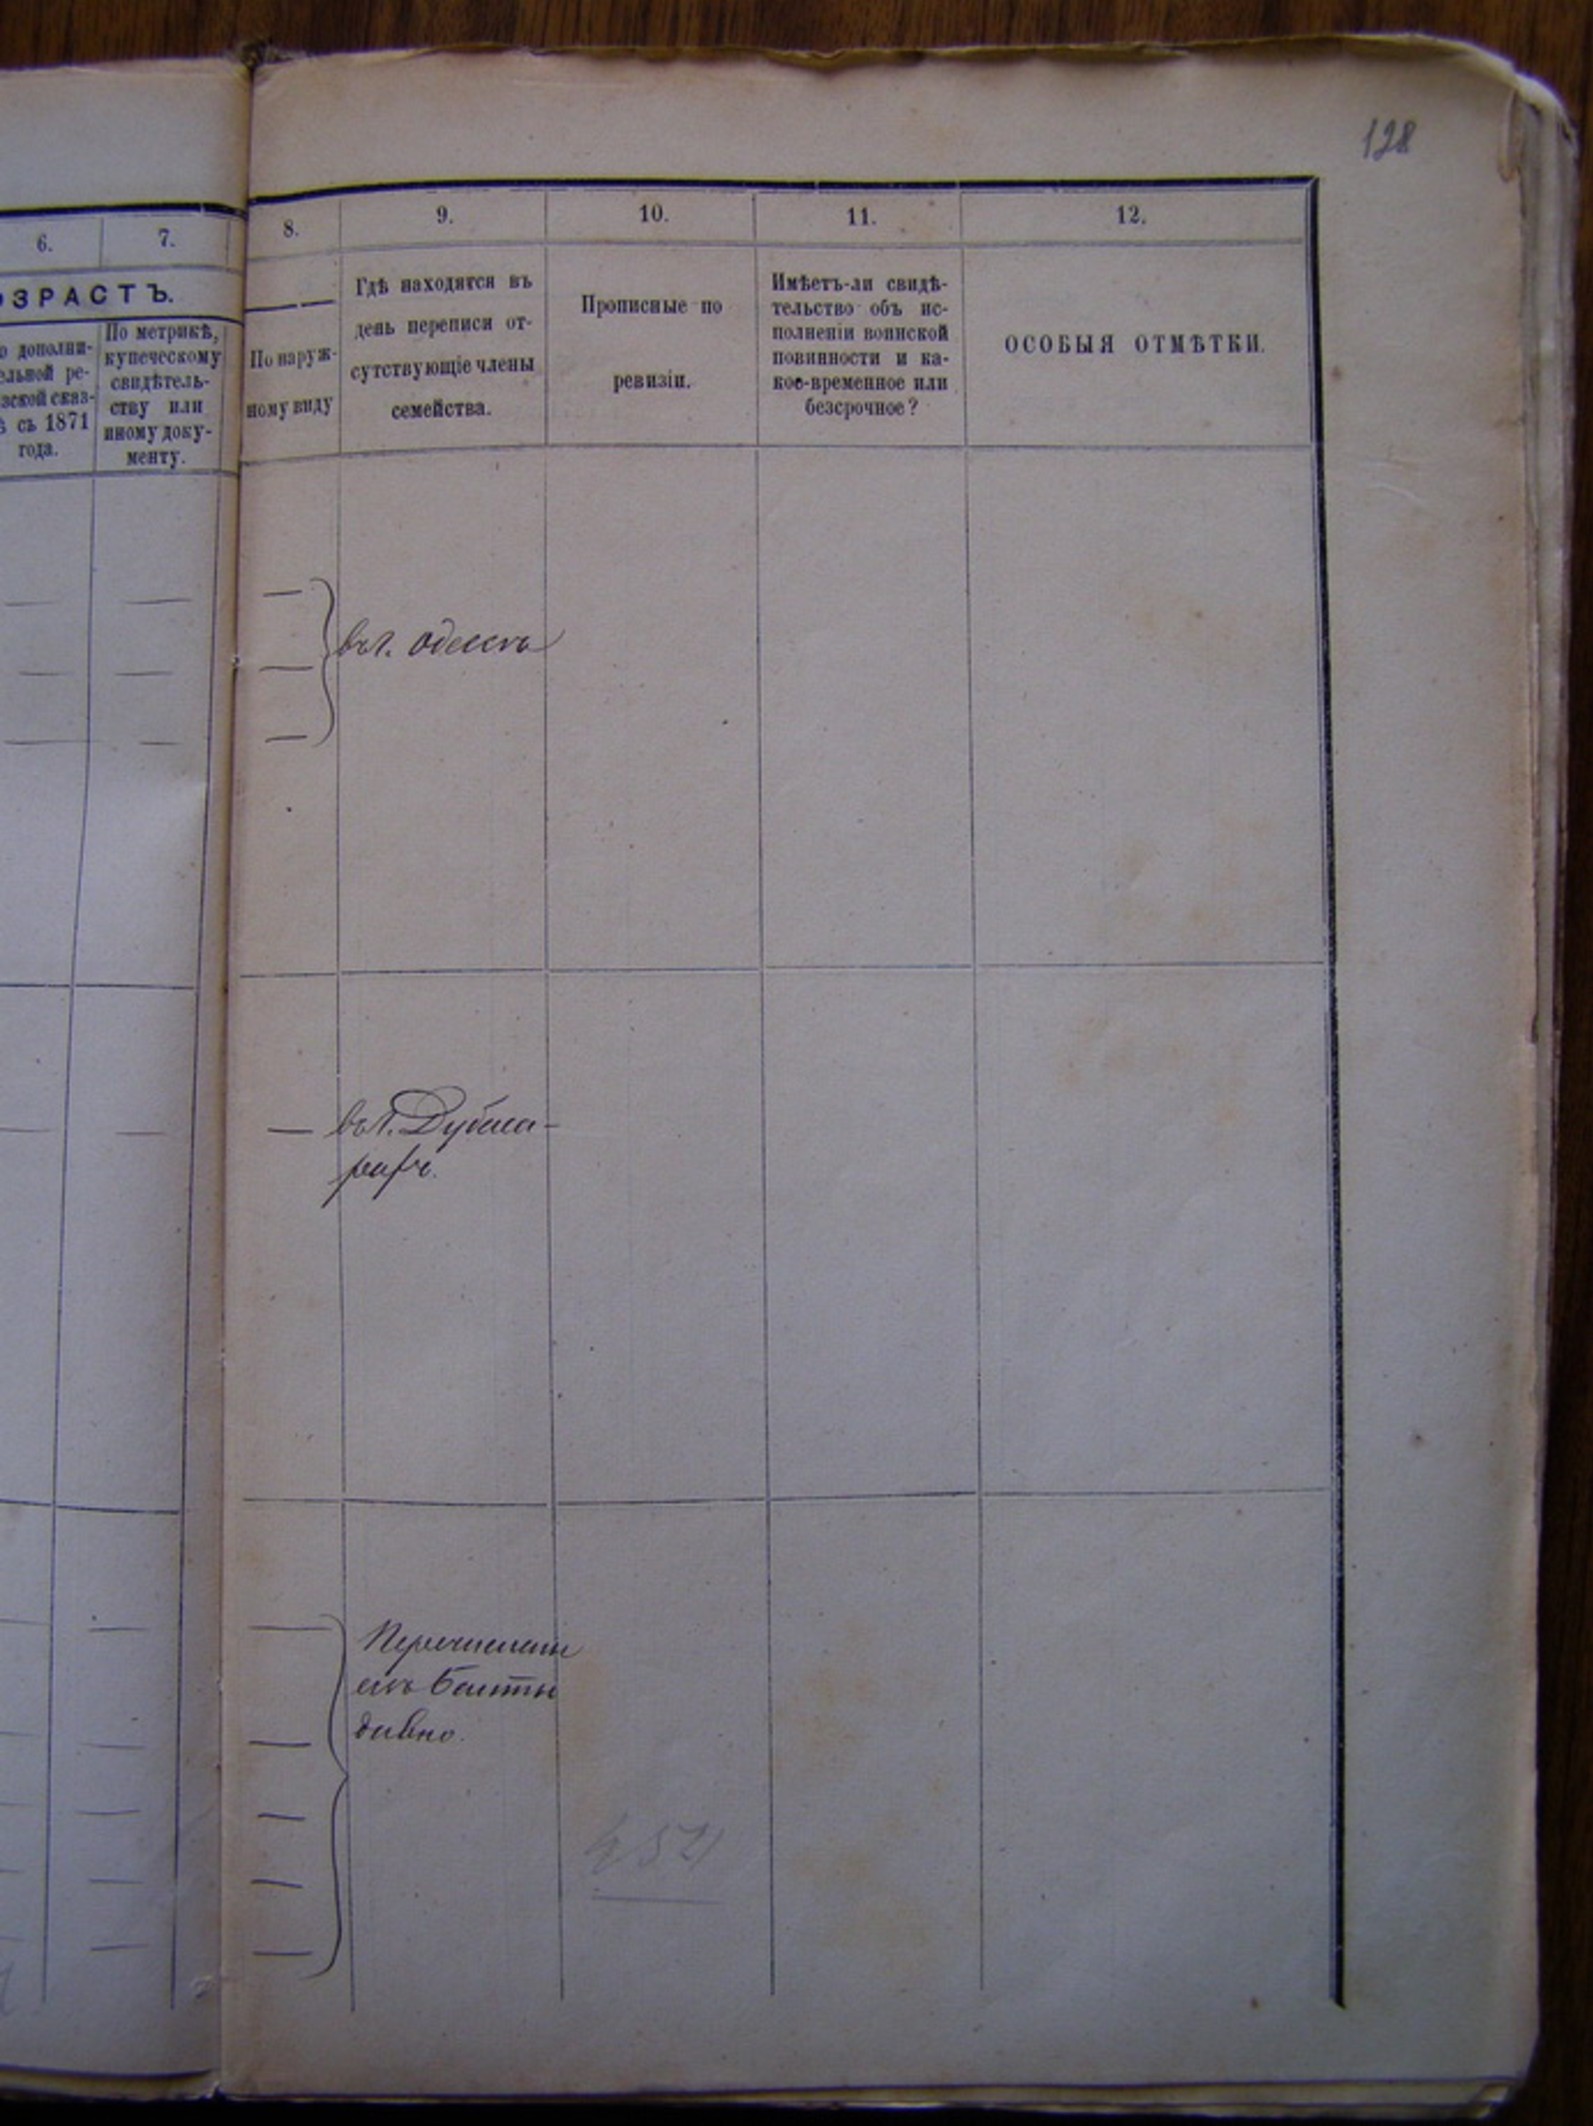 128
6.
7.
8.
9.
10.
11.
12.
ОЗРАСТЪ.
о дополни-
ельной ре-
зской сказ-
ѣ съ 1871
года.
По метрикѣ,
купеческому
свидѣтель-
ству или
иному доку-
менту.
По наруж-
ному виду
Гдѣ находятся въ
день переписи от-
сутствующіе члены
семейства.
Прописные по
ревизіи.
Имѣетъ-ли свидѣ-
тельство объ ис-
полненіи воинской
повинности и ка-
кое-временное или
безсрочное?
ОСОБЫЯ ОТМѢТКИ.
въ г. Одессѣ
въ г. Дубоса-
рахъ.
Перечислены
Балты
давно.
454